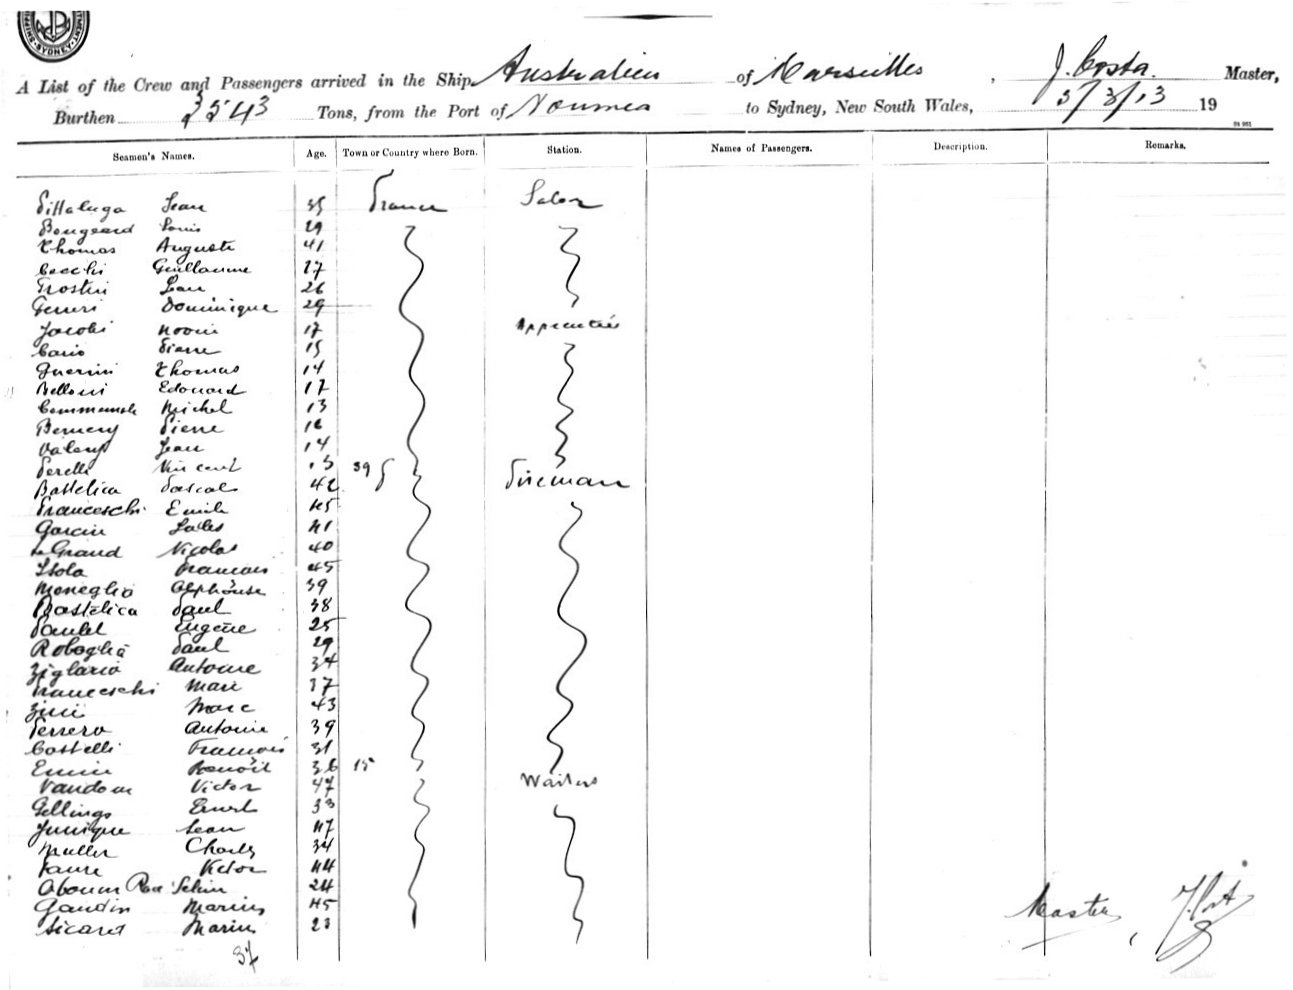 SYDNEY
A List of the Crew and Passengers arrived in the Ship Australien of Marseilles, J. Costa. Master,
Burthen 3543 Tons, from the Port of Noumea to Sydney, New South Wales, 3/3/13 19
Seamen's Names. Age. Town or Country where Born. Station. Names of Passengers. Description. Remarks.
Pittaluga Jean 35 France Salor
Bougeard Louis 29
Thomas Auguste 41
Cecchi Guillaume 27
Trostini Jean 26
Gerini Dominique 29
Jacobi 17 Apprentices
Cario Pierre 15
Guerrini Thomas 14
Belloni Edouard 17
Michel 13
Pierre 16
Valery Jean 14
Perelli Vincent 13 39
Battelica Pascal 42 Fireman
Franceschi Emile 45
Garcin Jules 41
Le Grand Nicolas 40
Isola Francois 45
Moneglia Alphonse 39
Bastelica Paul 38
Paulet Eugène 25
Roboglia Paul 29
Ziglario Antoine 34
Franceschi Marc 37
Zini Marc 43
Ferrero Antoine 39
Costelli Francois 31
Benoît 36 15
Vandom Victor 47 Waiters
Gellings Ernest 33
Junique Jean 47
Muller Charles 34
Faure Victor 44
Selim 24
Gaudin Marius 45
Sicard Marius 23
37
Master, J. Costa